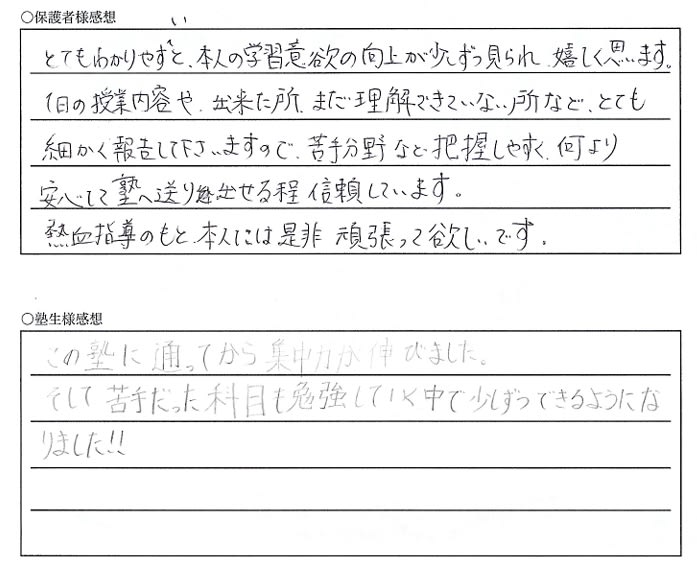 ○保護者様感想
とてもわかりやすいと、本人の学習意欲の向上が少しずつ見られ、嬉しく思います。
1日の授業内容や、出来た所、まだ理解できていない所など、とても
細かく報告して下さいますので、苦手分野など把握しやすく、何より
安心して塾へ送り出せる程信頼しています。
熱血指導のもと、本人には是非頑張って欲しいです。
○塾生様感想
この塾に通ってから集中力が伸びました。
そして苦手だった科目も勉強していく中で少しずつできるようにな
りました!!